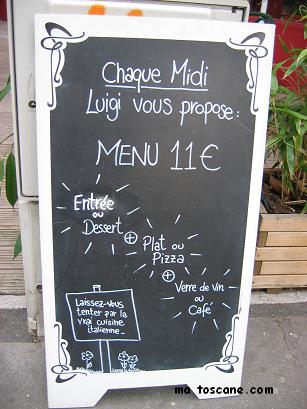 Chaque Midi
Luigi vous propose :
MENU 11 €
Entrée
ou
Dessert
+
Plat ou
Pizza
+
Verre de vin
ou
Café
Laissez-vous
tenter par la
vrai cuisine
italienne...
ma toscane.com